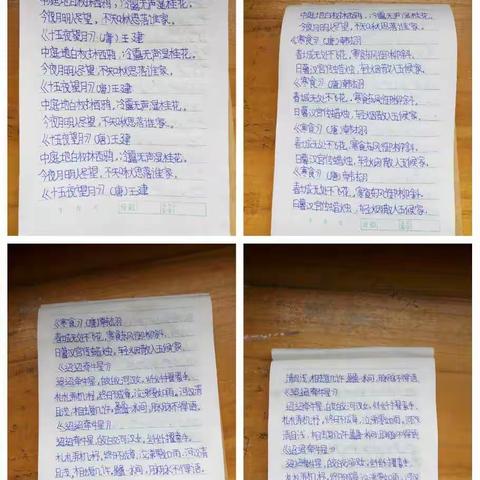 中庭地白树栖鸦，冷露无声湿桂花。
今夜月明人尽望，不知秋思落谁家。
《十五夜望月》（唐）王建
中庭地白树栖鸦，冷露无声湿桂花。
今夜月明人尽望，不知秋思落谁家。
《十五夜望月》（唐）王建
中庭地白树栖鸦，冷露无声湿桂花。
今夜月明人尽望，不知秋思落谁家。
《十五夜望月》（唐）王建
中庭地白树栖鸦，冷露无声湿桂花。
今夜月明人尽望，不知秋思落谁家。
《十五夜望月》（唐）王建
中庭地白树栖鸦，冷露无声湿桂花。
今夜月明人尽望，不知秋思落谁家。
《寒食》（唐）韩翃
春城无处不飞花，寒食东风御柳斜。
日暮汉宫传蜡烛，轻烟散入五侯家。
《寒食》（唐）韩翃
春城无处不飞花，寒食东风御柳斜。
日暮汉宫传蜡烛，轻烟散入五侯家。
《寒食》（唐）韩翃
春城无处不飞花，寒食东风御柳斜。
日暮汉宫传蜡烛，轻烟散入五侯家。
《寒食》（唐）韩翃
春城无处不飞花，寒食东风御柳斜。
日暮汉宫传蜡烛，轻烟散入五侯家。
《寒食》（唐）韩翃
春城无处不飞花，寒食东风御柳斜。
日暮汉宫传蜡烛，轻烟散入五侯家。
《迢迢牵牛星》
迢迢牵牛星，皎皎河汉女。纤纤擢素手，
札札弄机杼。终日不成章，泣涕零如雨。河汉清
且浅，相去复几许。盈盈一水间，脉脉不得语。
《迢迢牵牛星》
迢迢牵牛星，皎皎河汉女。纤纤擢素手，
札札弄机杼。终日不成章，泣涕零如雨。河汉清
且浅，相去复几许。盈盈一水间，脉脉不得语。
清且浅，相去复几许。盈盈一水间，脉脉不得语。
《迢迢牵牛星》
迢迢牵牛星，皎皎河汉女。纤纤擢素手，
札札弄机杼。终日不成章，泣涕零如雨。河汉
清且浅，相去复几许。盈盈一水间，脉脉不得语。
《迢迢牵牛星》
迢迢牵牛星，皎皎河汉女。纤纤擢素手，
札札弄机杼。终日不成章，泣涕零如雨。